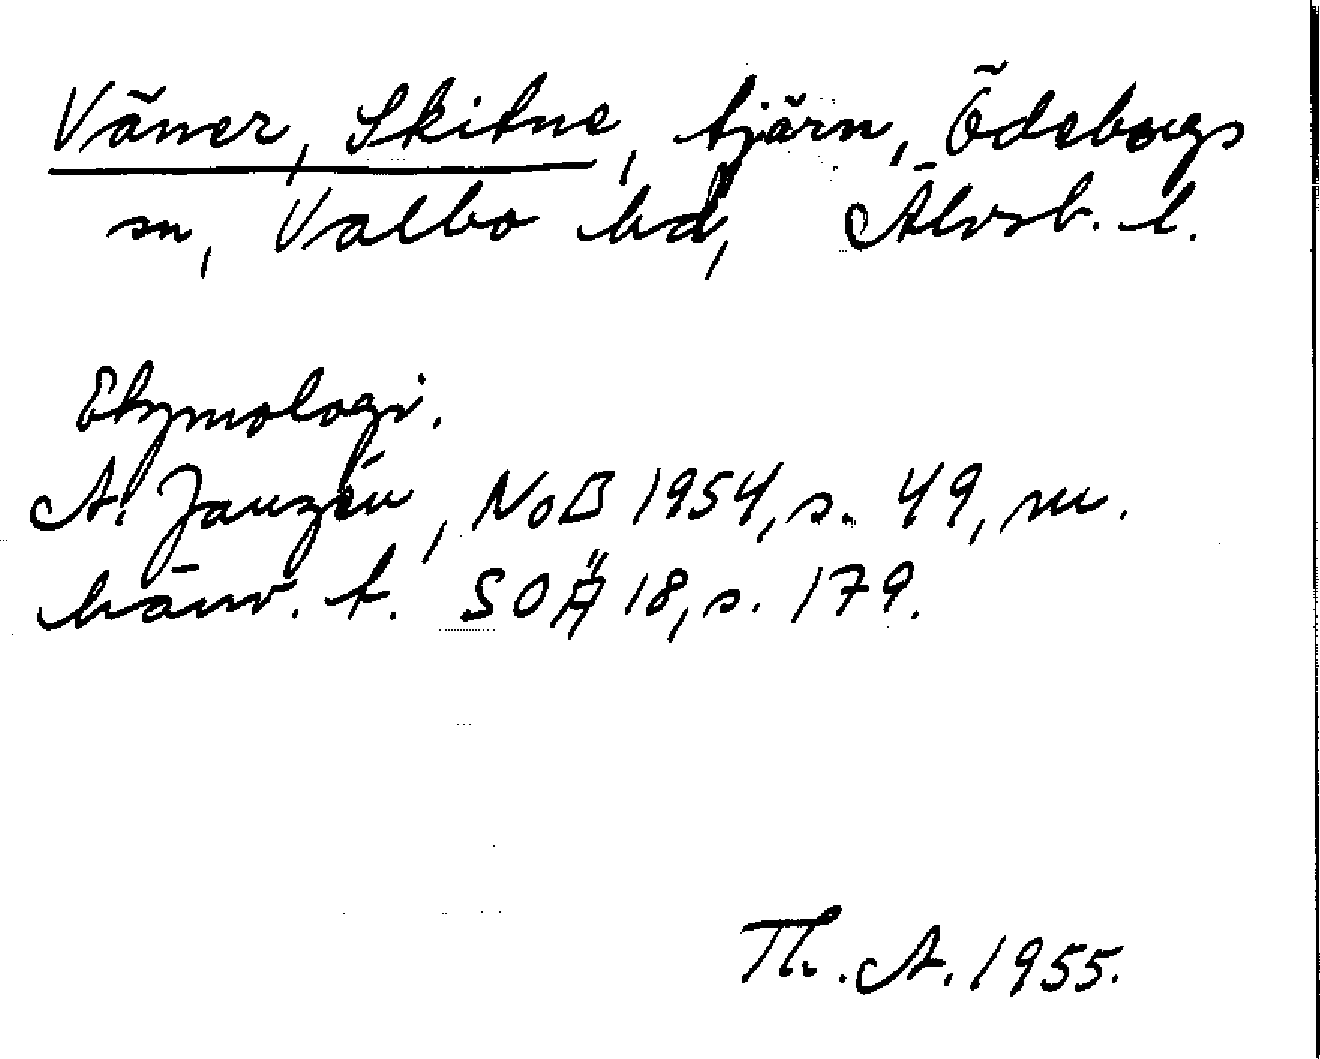 Väner, Skitne, tjärn, Ödeborgs
sn, Valbo hd, Älvsb. l.
Etymologi.
A. Janzén, NoB 1954, s. 49, m.
hänv. t. SOÄ 18, s. 179.
Th. A. 1955.